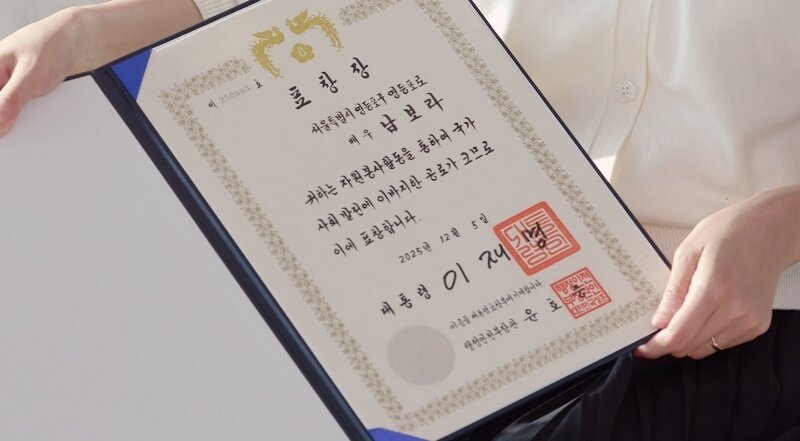 제 250883 호
표창장
서울특별시 영등포구 영등포로
배우 남보라
귀하는 자원봉사활동을 통하여 국가
사회 발전에 이바지한 공로가 크므로
이에 표창합니다.
2025년 12월 5일
대통령 이재명
이 증을 대통령표창부에 기입합니다.
행정안전부장관 윤호중